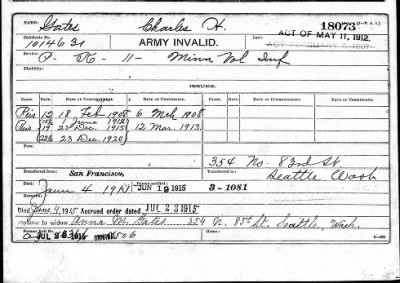 Gates Charles H. 18073
Certificate No. ARMY INVALID. ACT OF MAY 11, 1912.
1014631
Service: P. K 11 Minn Vol Inf
Disability:
ISSUES.
CLASS. RATE. DATE OF COMMENCEMENT. DATE OF CERTIFICATE. CLASS. RATE. DATE OF COMMENCEMENT. DATE OF CERTIFICATE.
Reis 12 18 Feb 1908 6 Mch 1908
15 1 June 1912
Reis 19 23 Dec. 1915 12 Mar. 1913.
23 Dec. 1920
354 No. 83rd St
San Francisco, Transferred to Seattle Wash
Died June 4 1915 JUN 19 1915 3-1081
Died June 4, 1915 Accrued order dated JUL 23 1915
to widow Anna M. Gates 354 N. 83d St. Seattle, Wash.